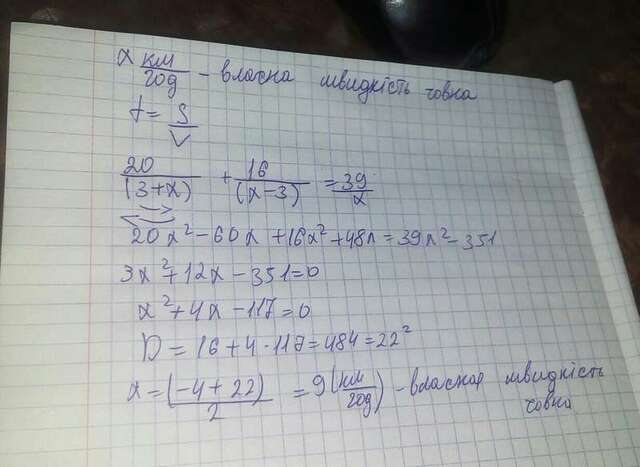 x км/год - власна швидкість човна
t = S/V
20/(3+x) + 16/(x-3) = 39/x
20x²-60x+16x²+48x=39x²-351
3x²+12x-351=0
x²+4x-117=0
D=16+4·117=484=22²
x=(-4+22)/2=9(км/год) - власная швидкість човна